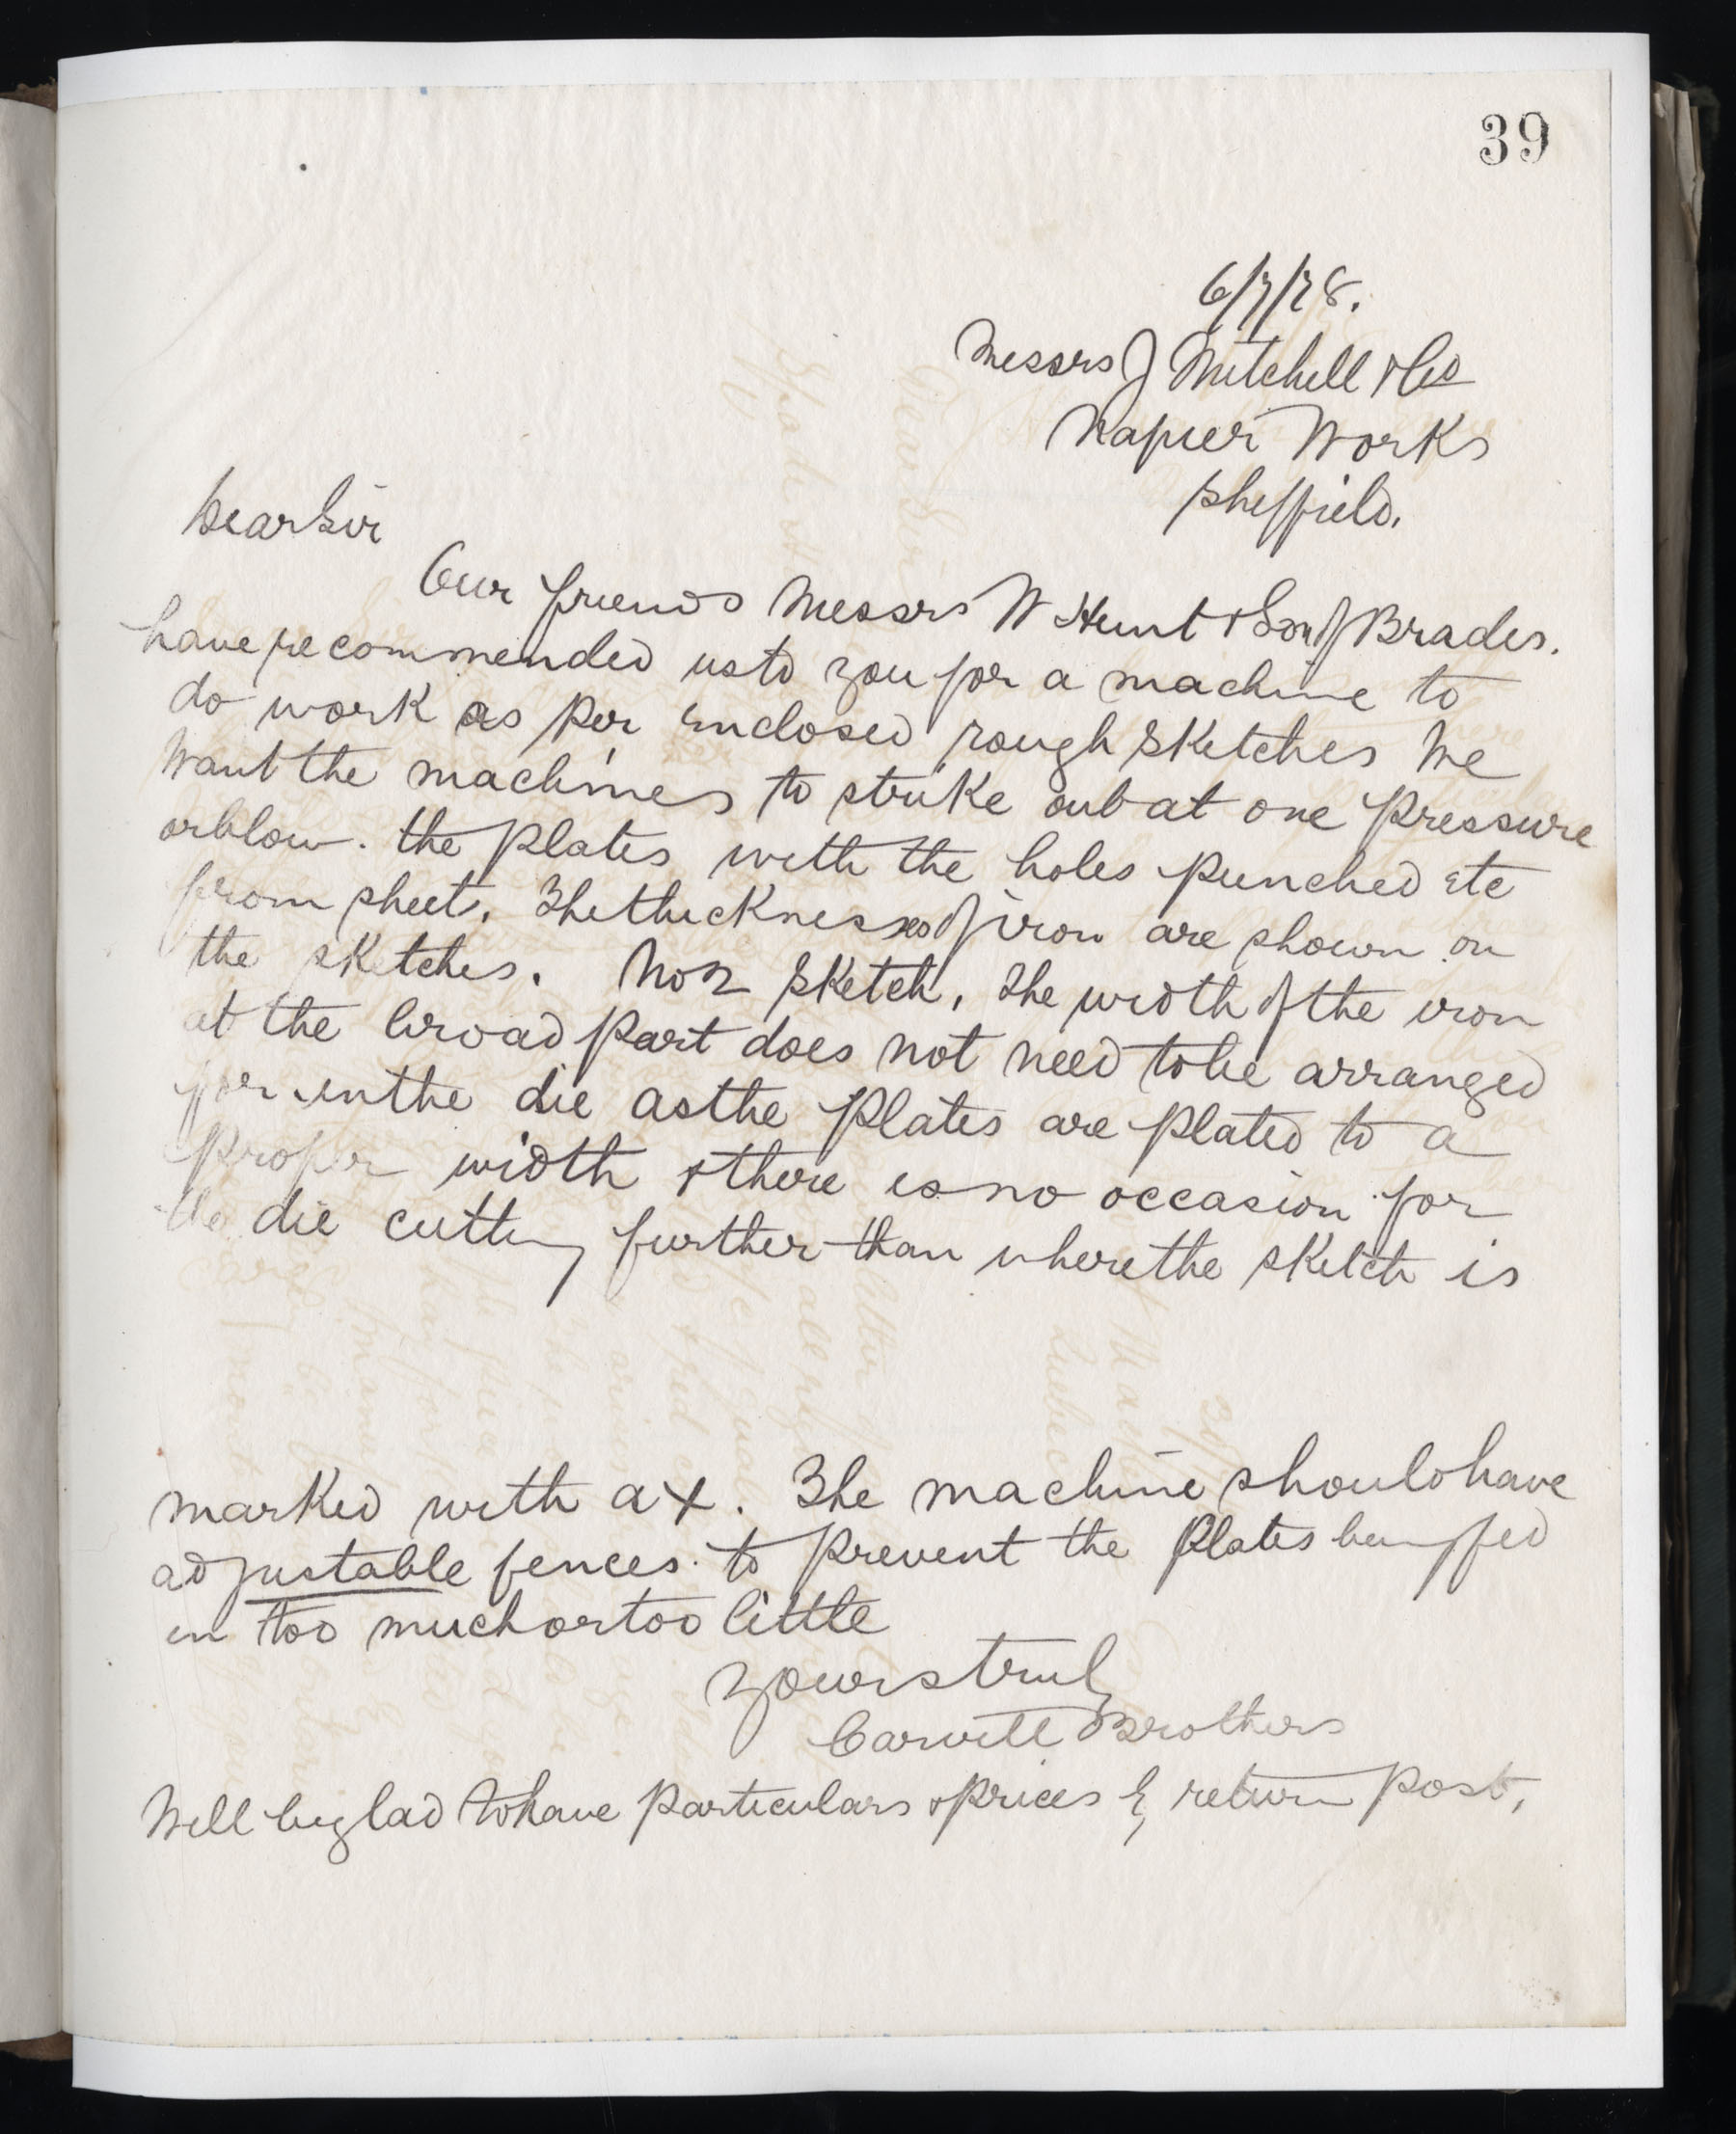 39
6/7/78.
Messrs J Mitchell & Co
Napier Works
Sheffield.
Dear Sir
Our friends Messrs W Hunt & Son of Brades.
have recommended us to you for a machine to
do work as per enclosed rough sketches We
want the machines to strike out at one pressure
or blow. the plates with the holes punched etc
from sheet. The thicknesses of iron are shown on
the sketches. No 2 sketch, the width of the iron
at the broad part does not need to be arranged
for in the die as the plates are plated to a
proper width & there is no occasion for
the die cutting further than where the sketch is
marked with a x. The machine should have
adjustable fences to prevent the plates being fed
in too much or too little
Yours truly
Brothers
Will be glad to have particulars & prices by return post,